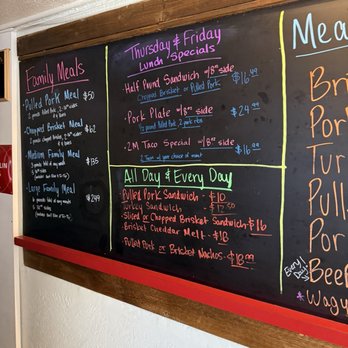 Family Meals
Pulled Pork Meal $50
Chopped Brisket Meal $62
Medium Family Meal $135
Large Family Meal $249
Thursday & Friday
Lunch Specials
Half Pound Sandwich w/8oz side $16.99
Chopped Brisket or Pulled Pork
Pork Plate w/8oz side $24.99
1/2 pound Pulled Pork, 2 pork ribs
2 Taco Special w/8oz side $16.99
2 Tacos of your choice of meat
All Day & Every Day
Pulled Pork Sandwich - $10
Turkey Sandwich - $12.50
Sliced or Chopped Brisket Sandwich $16
Brisket Cheddar Melt - $18
Pulled Pork or Brisket Nachos - $18.99
Mea
Bri
Por
Tur
Pull
Por
Beef
Wagy
Every
Day